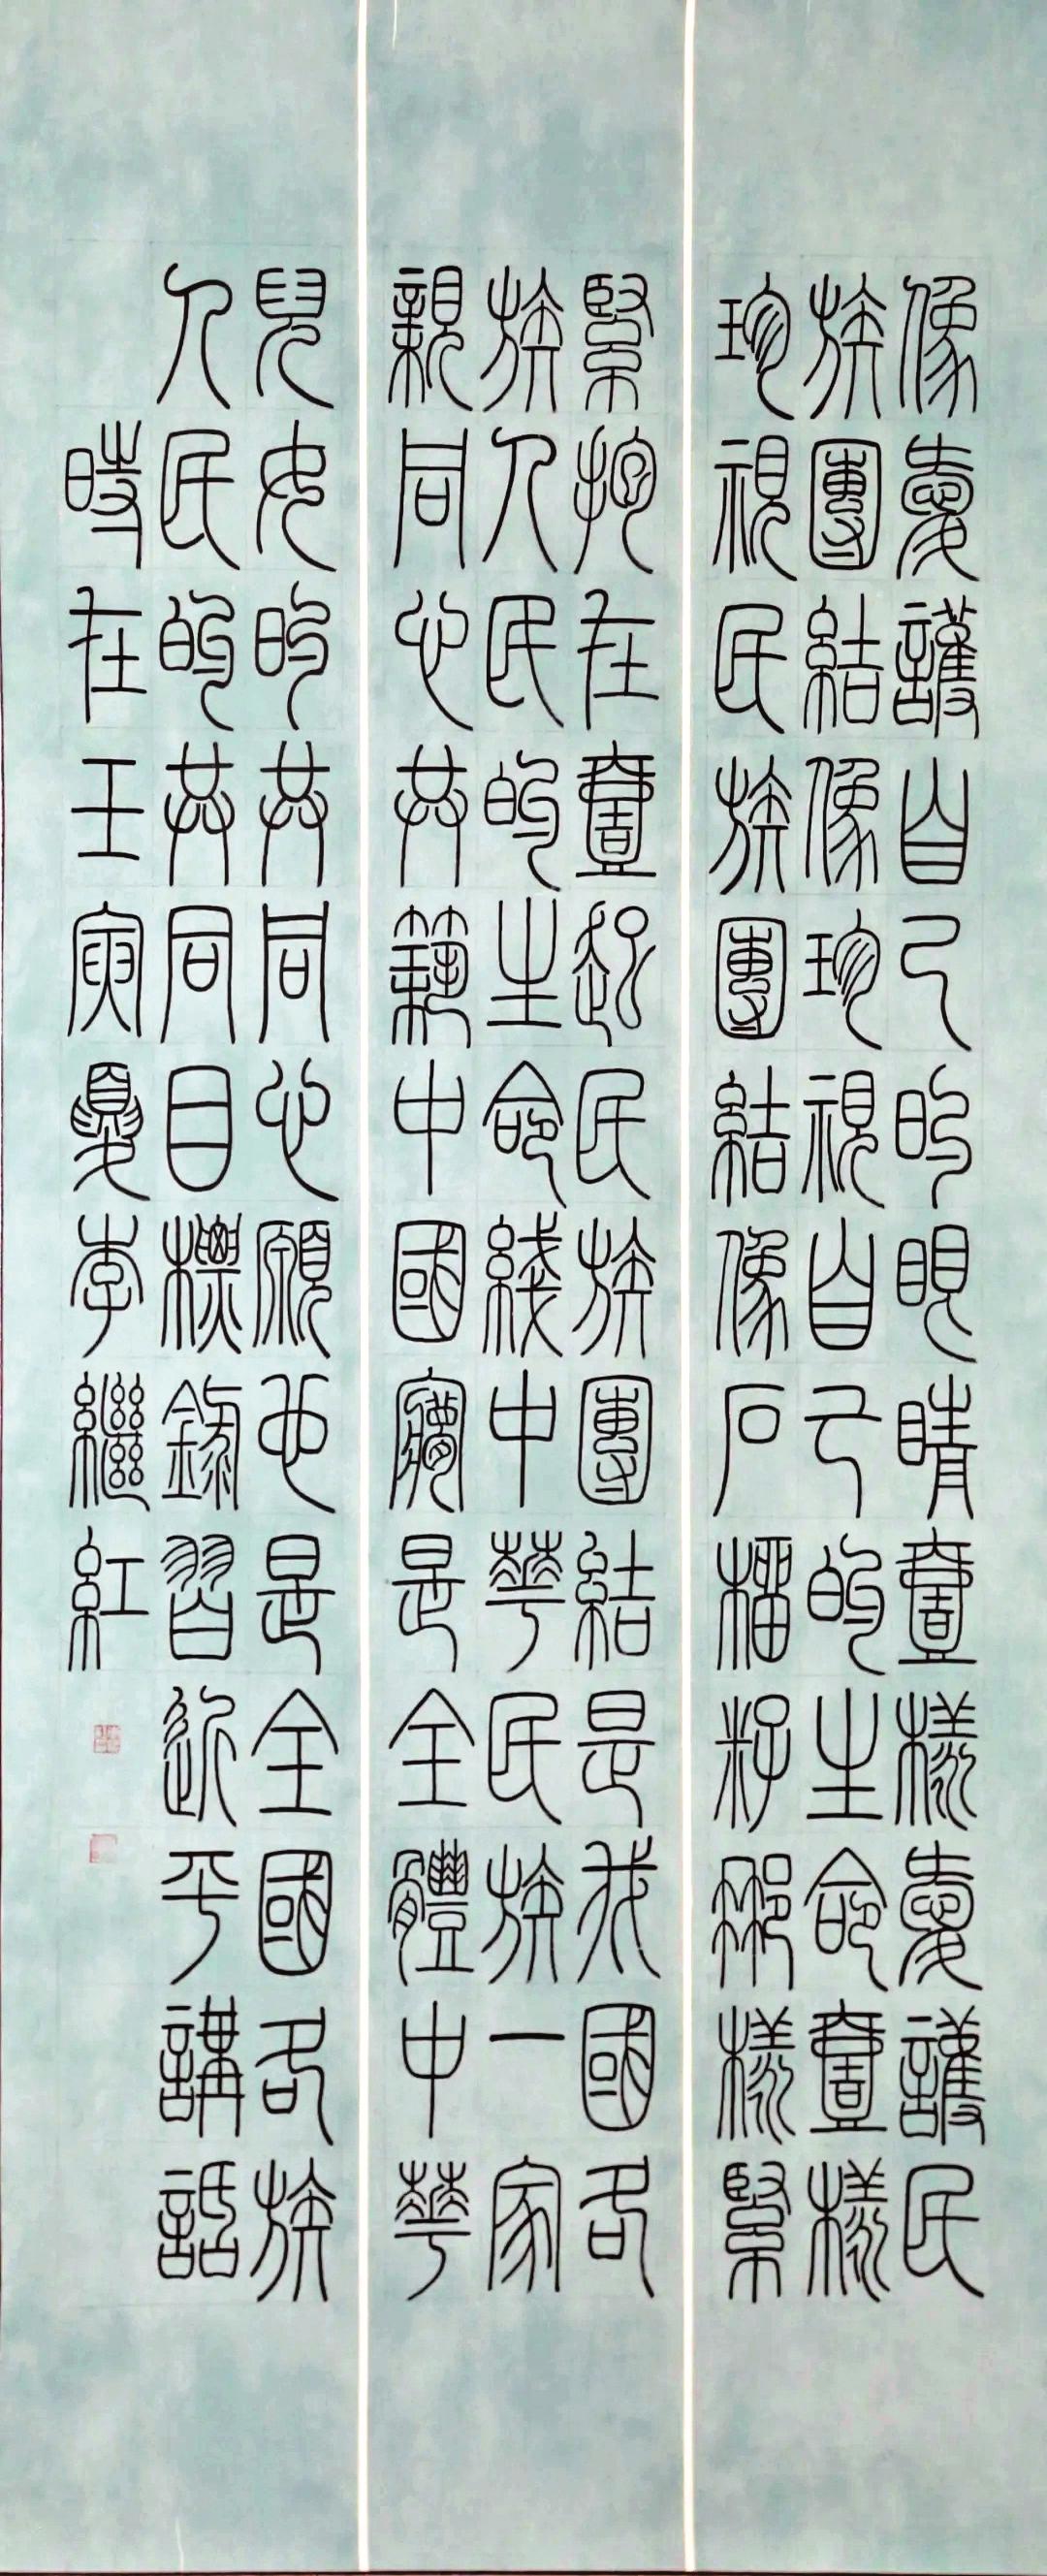 像愛護自己的眼睛壹樣愛護民
族團結像珍視自己的生命壹樣
珍視民族團結像石榴籽那樣緊
緊抱在壹起民族團結是我國各
族人民的生命綫中華民族一家
親同心共築中國夢是全體中華
兒女的共同心願也是全國各族
人民的共同目標錄習近平講話
時在壬寅夏李繼紅